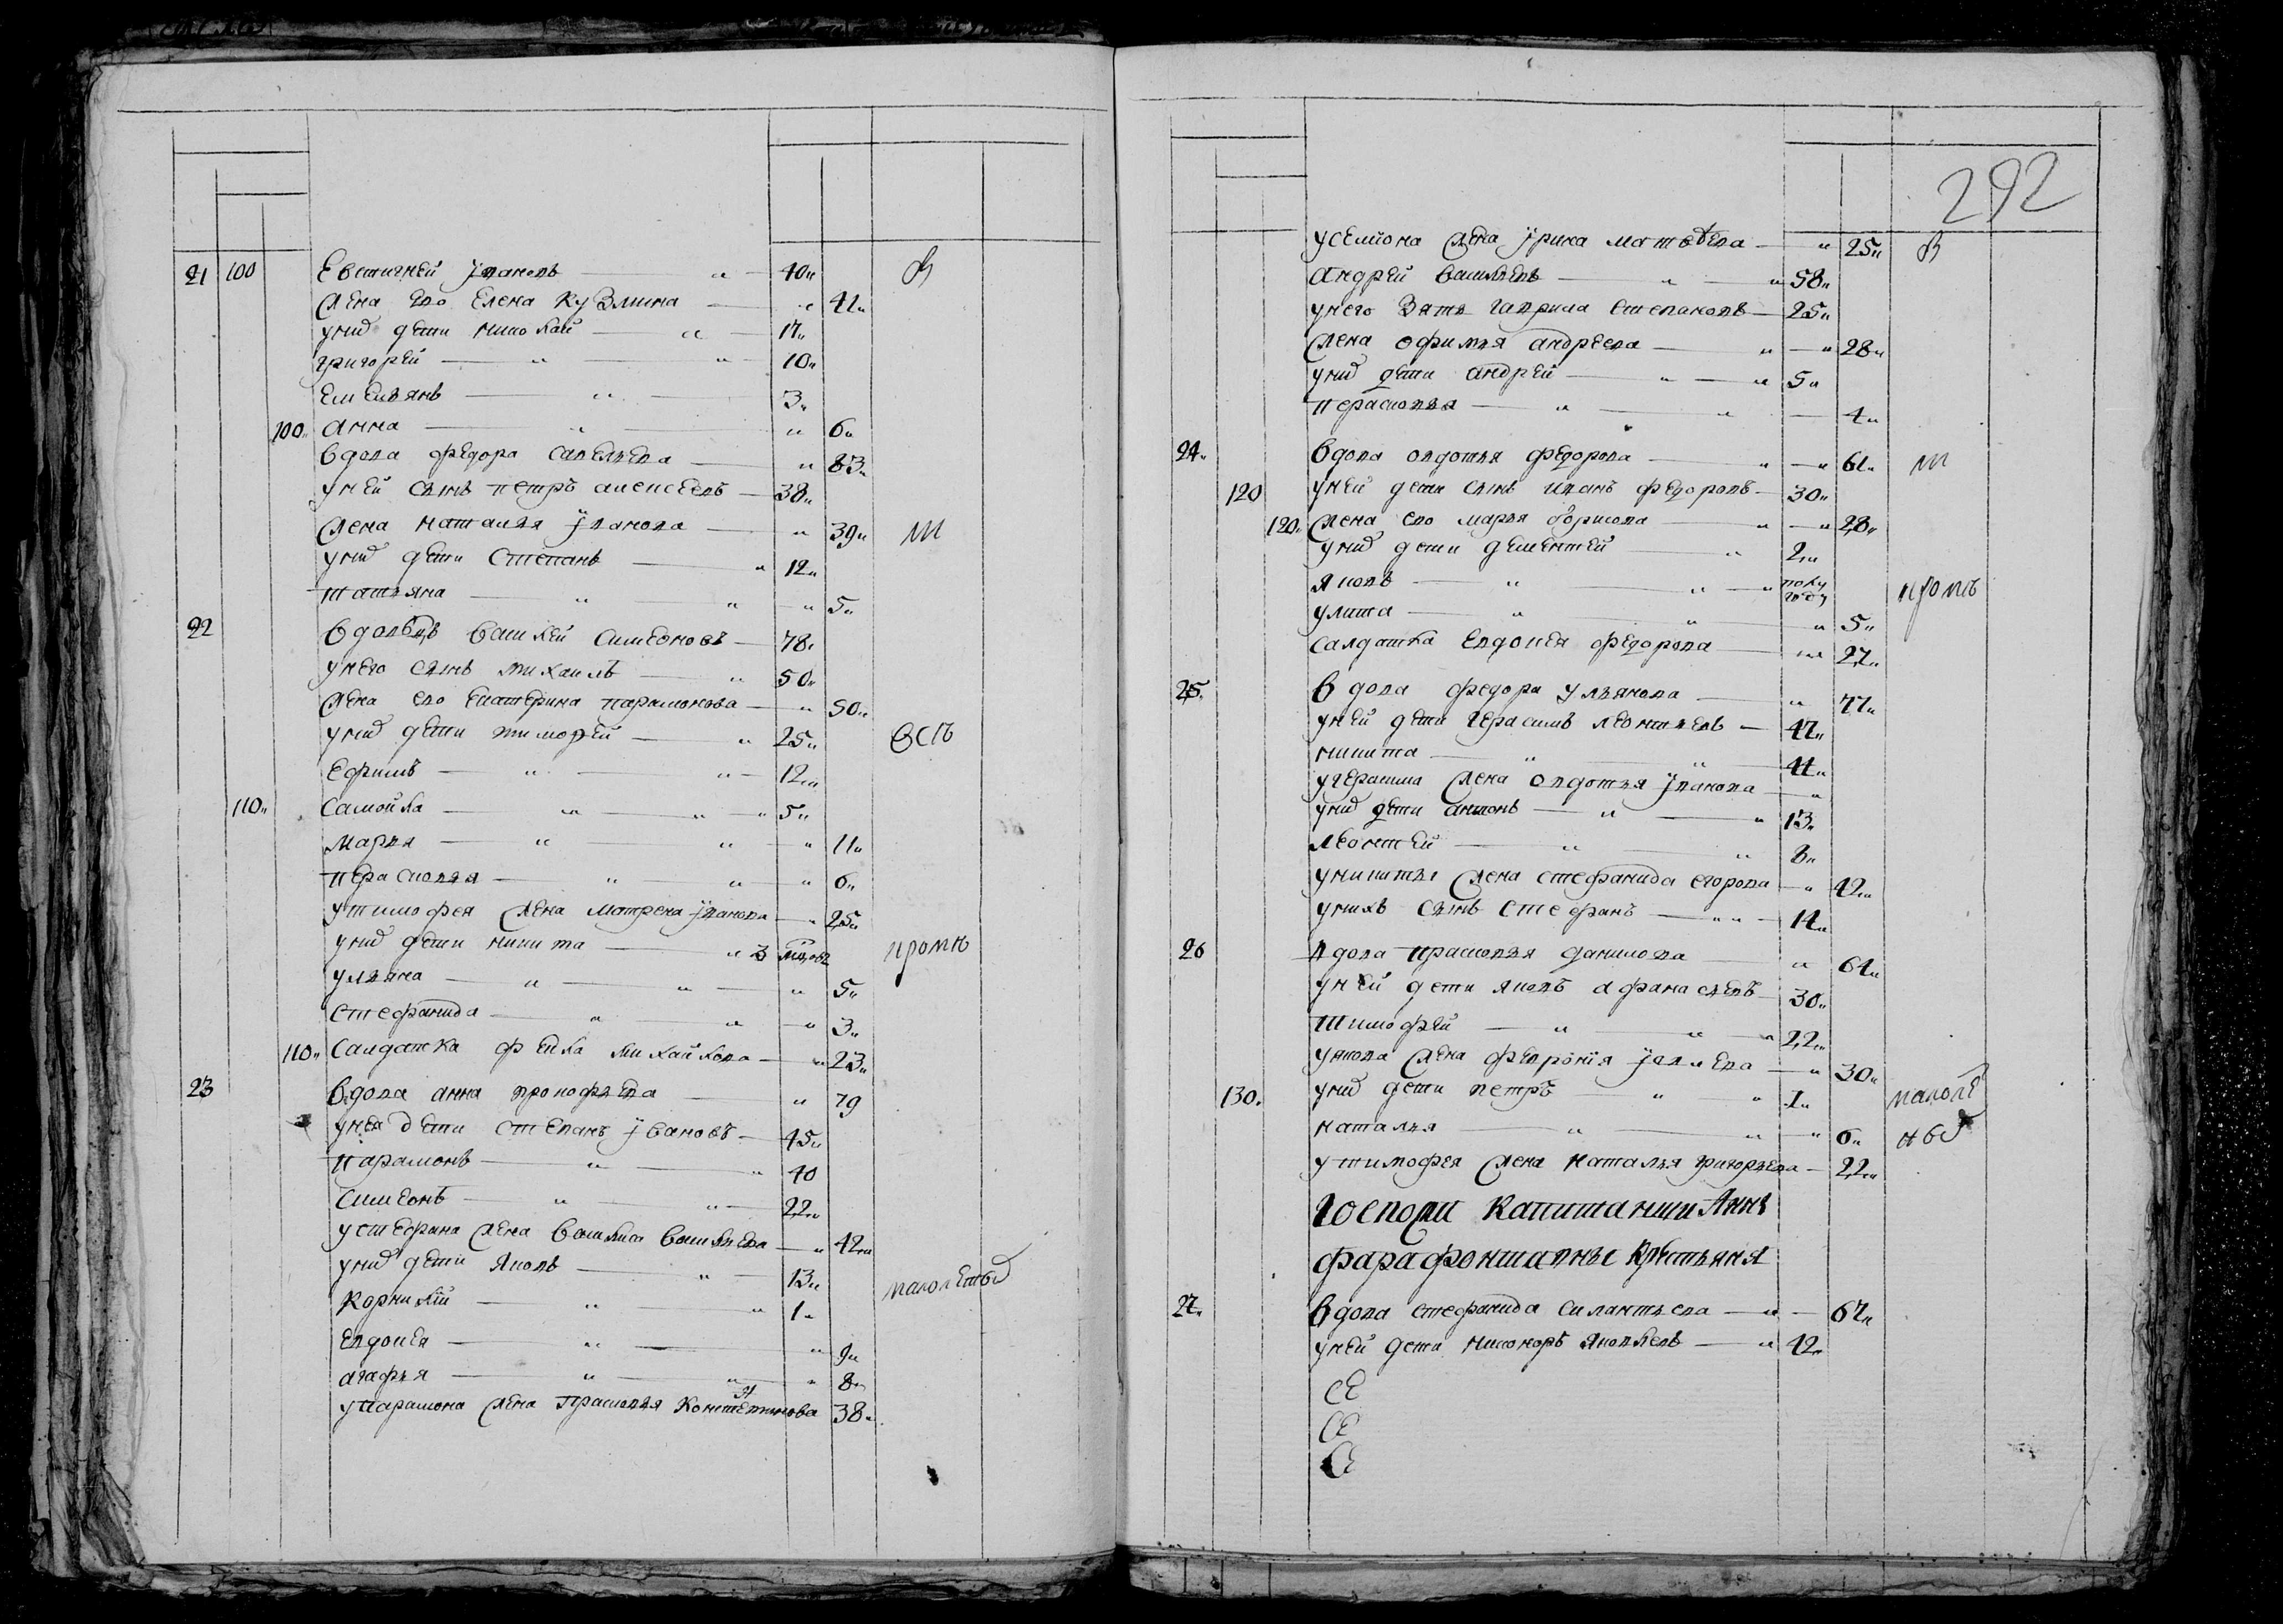 21 100 Евтигней Ивановъ 40
Жена ево Елена Кузмина 41
у нихъ дети Николай 17
григорей 10
Емельянъ 3
100 Анна 6
Вдова федора Савельева 83
у ней сынъ петръ алексеевъ 38
Жена наталья Иванова 39
у нихъ дети Степанъ 12
татьяна 5
22 Вдовецъ Василей Симеоновъ 78
у него сынъ михаилъ 50
Жена ево Екатерина парамонова 50
у нихъ дети тимофей 25 всп
Ефимъ 12
110 Самойла 5
марья 11
перасковья 6
у тимофея Жена матрена Иванова 25
у нихъ дети никита 3 кромѣ
ульяна 5
стефанида 3
110 Салдатка фекла михайлова 23
23 Вдова анна прокофьева 79
у нея дети степанъ Ивановъ 45
парамонъ 40
симеонъ 22
у стефана Жена василиса васильева 42
у нихъ дети яковъ 13 малолетны
корнилий 1
Евдокея 9
агафья 8
у парамона Жена прасковья константинова 38
292
у семиона Жена Ирина матвеева 25
Андрей васильевъ 58
у него зять гаврила степановъ 25
Жена офимья андреева 28
у нихъ дети андрей 5
перасковья 4
24 Вдова овдотья федорова 61
120 у ней дети сынъ иванъ федоровъ 30
120 Жена ево марья борисова 28
у нихъ дети дементей 2
яковъ полу году кромѣ
улита 5
салдатка Евдокея федорова 27
25 Вдова федора ульянова 77
у ней дети герасимъ леонтьевъ 47
никита 41
у герасима Жена овдотья Иванова
у нихъ дети антонъ 13
леонтей 8
у никиты Жена стефанида егорова 42
у нихъ сынъ стефанъ 14
26 Вдова прасковья данилова 61
у ней дети яковъ афанасьевъ 30
тимофей 22
у якова Жена феврония 30
130 у нихъ дети петръ 1 малоле
наталья 6 ны
у тимофея Жена наталья григорьева 22
Госпожи капитанши Анны
фарафонтьевны крестьяня
27 Вдова стефанида силантьева 67
у ней дети никоноръ яковлевъ 42